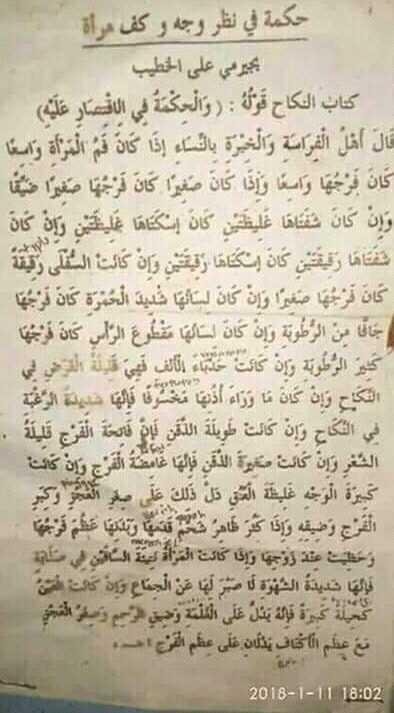 حكمة في نظر وجه و كف مرأة
بجيرمي على الخطيب
كتاب النكاح قَوْلُهُ : ( وَالْحِكْمَةُ فِي الِاقْتِصَارِ عَلَيْهِ)
قَالَ أَهْلُ الْفِرَاسَةِ وَالْخِبْرَةِ بِالنِّسَاءِ إذَا كَانَ فَمُ الْمَرْأَةِ وَاسِعًا
كَانَ فَرْجُهَا وَاسِعًا وَإِذَا كَانَ صَغِيرًا كَانَ فَرْجُهَا صَغِيرًا ضَيِّقًا
وَإِنْ كَانَ شَفَتَاهَا غَلِيظَتَيْنِ كَانَ إسْكَتَاهَا غَلِيظَتَيْنِ وَإِنْ كَانَ
شَفَتَاهَا رَقِيقَتَيْنِ كَانَ إسْكَتَاهَا رَقِيقَتَيْنِ وَإِنْ كَانَتْ السُّفْلَى رَقِيقَةً
كَانَ فَرْجُهَا صَغِيرًا وَإِنْ كَانَ لِسَانُهَا شَدِيدَ الْحُمْرَةِ كَانَ فَرْجُهَا
جَافًّا مِنَ الرُّطُوبَةِ وَإِنْ كَانَ لِسَانُهَا مَقْطُوعَ الرَّأْسِ كَانَ فَرْجُهَا
كَثِيرَ الرُّطُوبَةِ وَإِنْ كَانَتْ حَدْبَاءَ الْأَنْفِ فَهِيَ قَلِيلَةُ الْغَرَضِ فِي
النِّكَاحِ وَإِنْ كَانَ مَا وَرَاءَ أُذُنِهَا مَخْسُوفًا فَإِنَّهَا شَدِيدَةُ الرَّغْبَةِ
فِي النِّكَاحِ وَإِنْ كَانَتْ طَوِيلَةَ الذَّقَنِ فَإِنَّ فَاتِحَةَ الْفَرْجِ قَلِيلَةُ
الشَّعْرِ وَإِنْ كَانَتْ صَغِيرَةَ الذَّقَنِ فَإِنَّهَا غَامِضَةُ الْفَرْجِ وَإِنْ كَانَتْ
كَبِيرَةَ الْوَجْهِ غَلِيظَةَ الْعُنُقِ دَلَّ ذَلِكَ عَلَى صِغَرِ الْعَجُزِ وَكِبَرِ
الْفَرْجِ وَضِيقِهِ وَإِذَا كَثُرَ ظَاهِرُ شَحْمِ قَدَمِهَا وَبَدَنِهَا عَظُمَ فَرْجُهَا
وَحَظِيَتْ عِنْدَ زَوْجِهَا وَإِذَا كَانَتْ الْمَرْأَةُ نَتِيئَةَ السَّاقَيْنِ فِي صَلَابَةٍ
فَإِنَّهَا شَدِيدَةُ الشَّهْوَةِ لَا صَبْرَ لَهَا عَنِ الْجِمَاعِ وَإِنْ كَانَتْ الْعَيْنُ
كَحِيلَةً كَبِيرَةً فَإِنَّهُ يَدُلُّ عَلَى الْغُلْمَةِ وَضِيقِ الرَّحِمِ وَصِغَرُ الْعَجُزِ
مَعَ عِظَمِ الْأَكْتَافِ يَدُلَّانِ عَلَى عِظَمِ الْفَرْجِ
2018-1-11 18:02